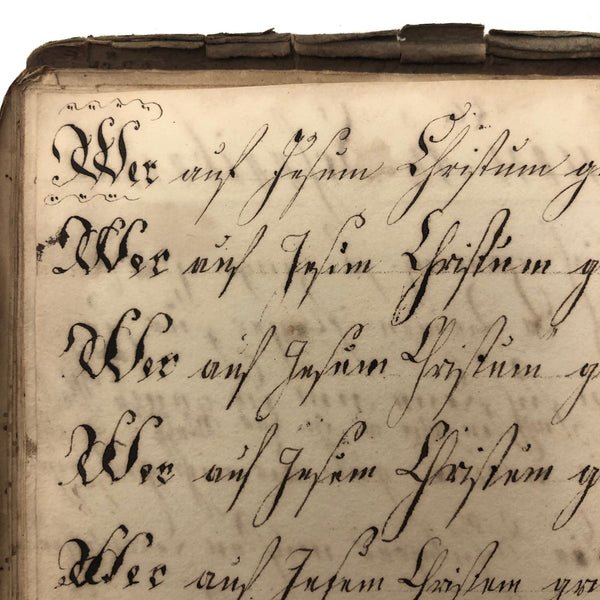 Wer auf Jesum Christum g
Wer auf Jesum Christum g
Wer auf Jesum Christum g
Wer auf Jesum Christum g
Wer auf Jesem Christem gr